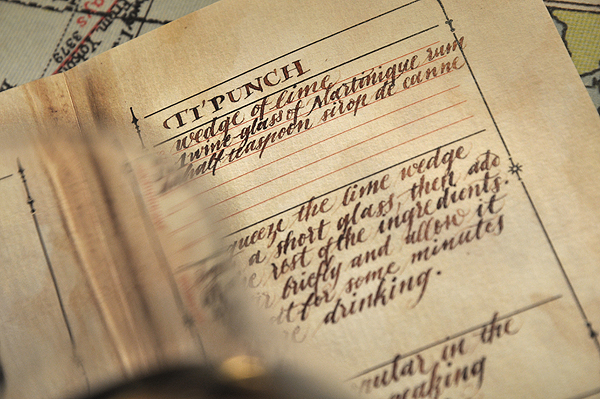 TI'PUNCH
wedge of lime
wine-glass of Martinique rum
half teaspoon sirop de canne
the lime wedge
a short glass, then add
rest of the ingredients.
briefly and allow it
for some minutes
drinking.
in the
3379